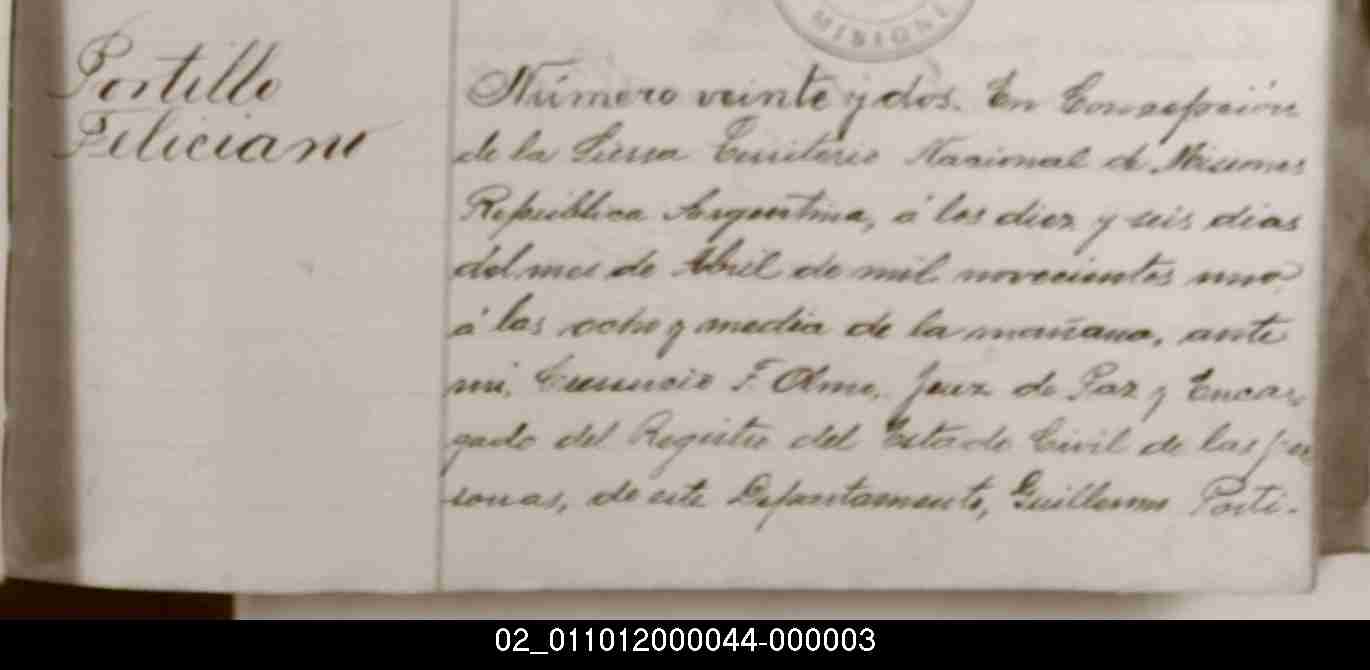 MISIONE
Portillo
Feliciano
Número veinte y dos. En Concepción
de la Sierra Territorio Nacional de Misiones
República Argentina, á los diez y seis dias
del mes de Abril de mil novecientos uno,
á las ocho y media de la mañana, ante
mi, F. Olmo, Juez de Paz y Encar
gado del Registro del Estado Civil de las per
sonas, de este Departamento, Guillermo Porti-
02_011012000044-000003